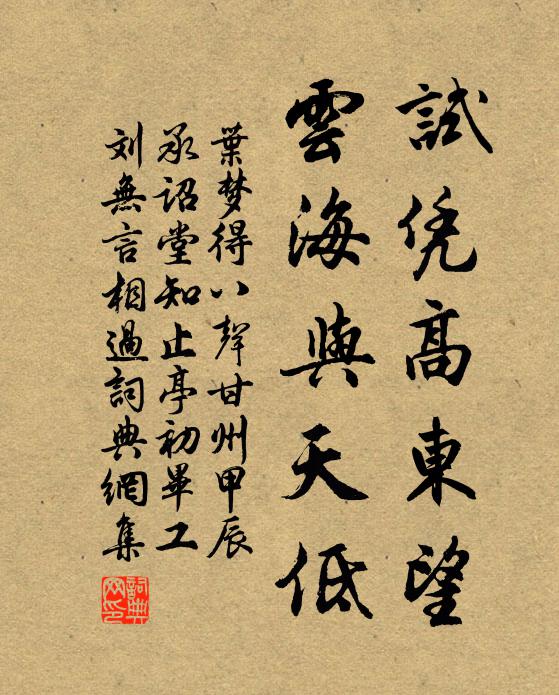 試凭高東望
雲海與天低
葉梦得八聲甘州甲辰
承诏堂知止亭初畢工
刘無言相過詞典網集
詞典网印